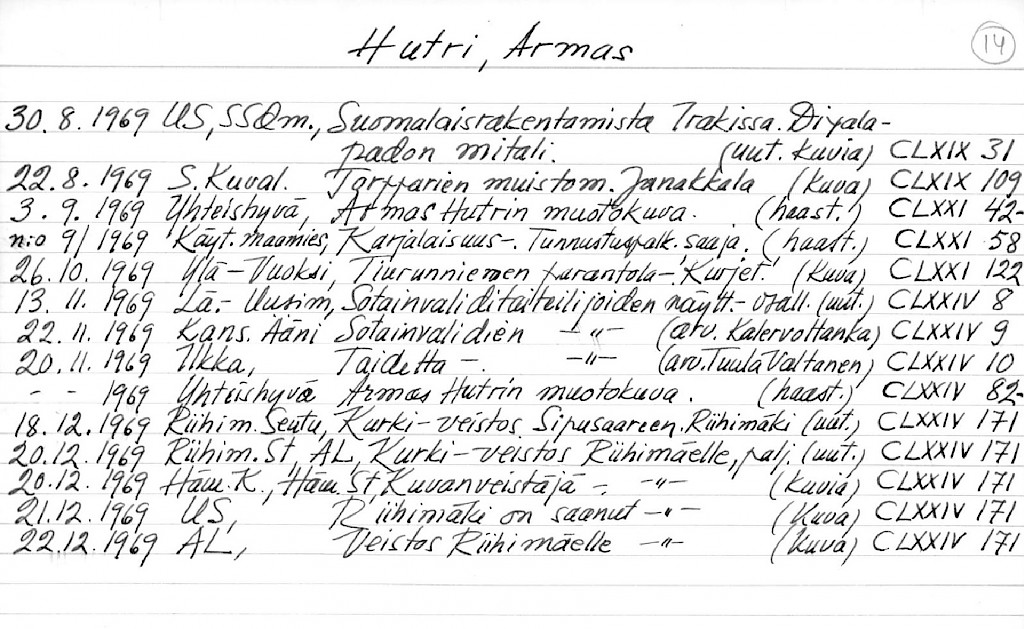 Hutri, Armas
14
30. 8. 1969 US, SSDm., Suomalaisrakentamista Irakissa. Diyala-
padon mitali. (uut. kuvia) CLXIX 31
22. 8. 1969 S. Kuval. Torpparien muistom. Janakkala (kuva) CLXIX 109
3. 9. 1969 Yhteishyvä, Armas Hutrin muotokuva. (haast.) CLXXI 42-
n:o 9/1969 Käyt. maamies, Karjalaisuus-. Tunnustuspalk. saaja. (haast.) CLXXI 58
26. 10. 1969 Ylä-Vuoksi, Tiurunniemen parantola-"Kurjet". (kuva) CLXXI 122
13. 11. 1969 Lä.- Uusim, Sotainvaliditaiteilijoiden näytt.- osall. (uut.) CLXXIV 8
22. 11. 1969 Kans. Ääni Sotainvalidien -"- (arv. Kalervo Hanka) CLXXIV 9
20. 11. 1969 Ilkka, Taidetta -. -"- (arv. Tuula Valtanen) CLXXIV 10
- - 1969 Yhteishyvä Armas Hutrin muotokuva. (haast.) CLXXIV 82-
18. 12. 1969 Riihim. Seutu, Kurki-veistos Sipusaareen. Riihimäki (uut.) CLXXIV 171
20. 12. 1969 Riihim. St, AL, Kurki-veistos Riihimäelle, palj. (uut.) CLXXIV 171
20. 12. 1969 Häm. K., Häm. St, Kuvanveistäjä -. -"- (kuvia) CLXXIV 171
21. 12. 1969 US, Riihimäki on saanut -"- (kuva) CLXXIV 171
22. 12. 1969 AL, Veistos Riihimäelle -"- (kuva) CLXXIV 171